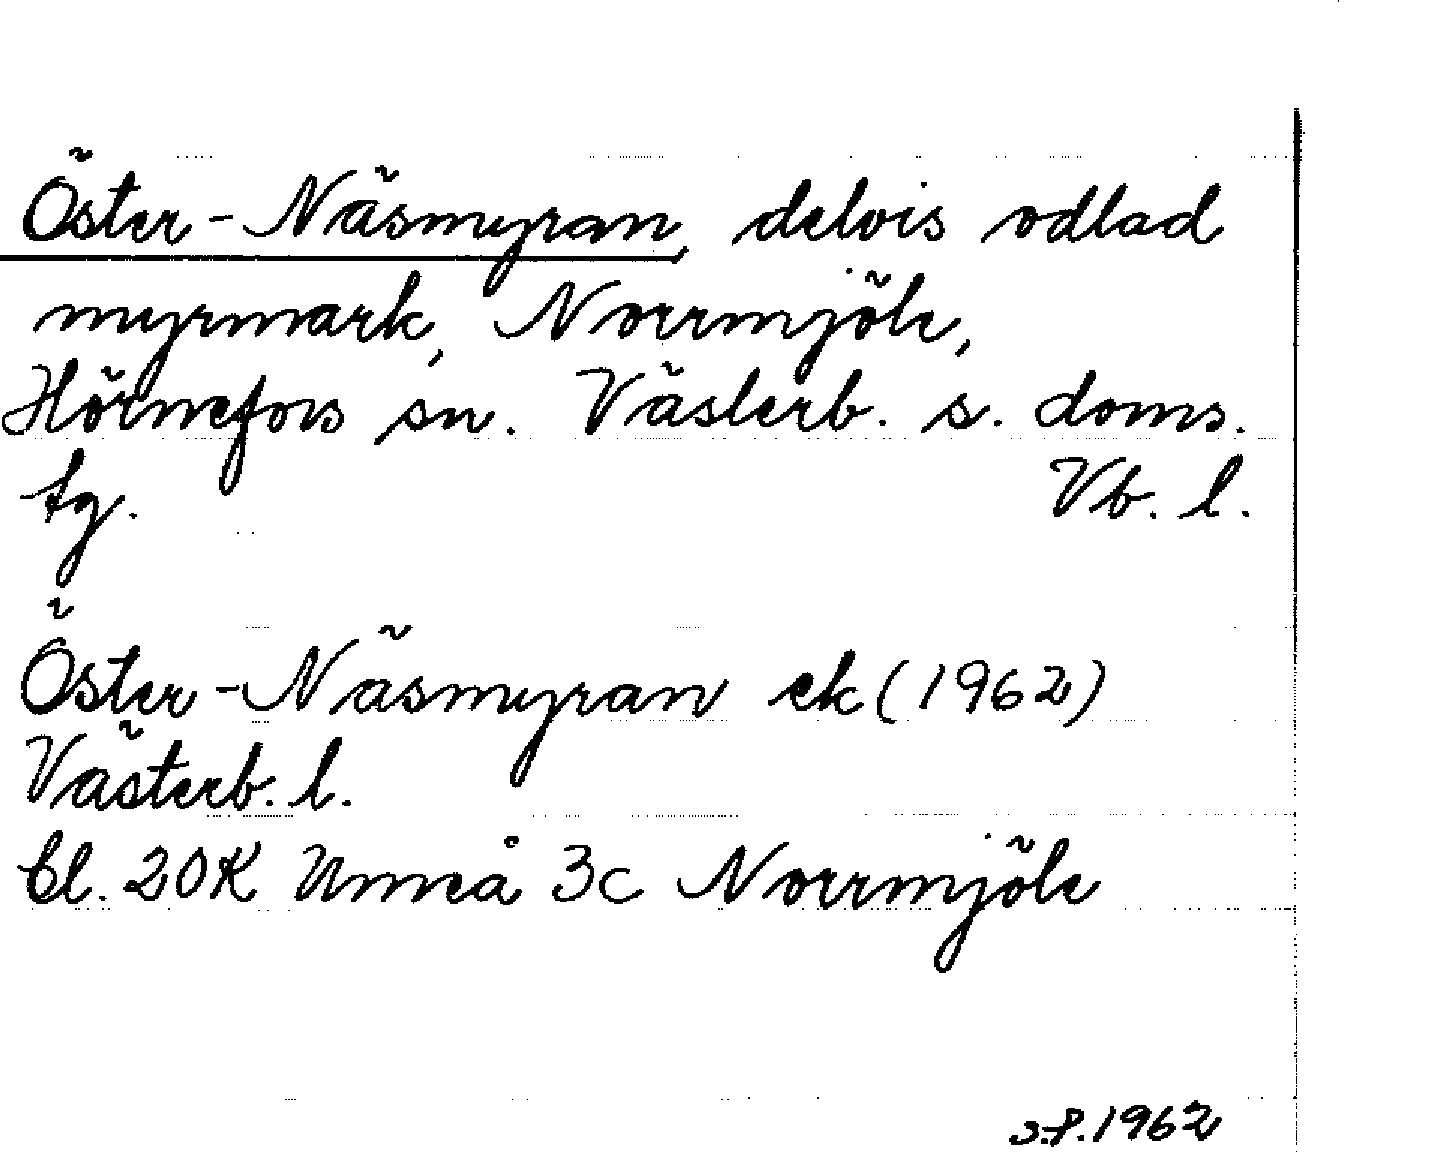 Öster-Näsmyran, delvis odlad
myrmark, Norrmjöle,
Hörnefors sn. Västerb. s. doms.
tg. Vb. l.
Öster-Näsmyran ek (1962)
Västerb. l.
bl. 20K Umeå 3c Norrmjöle
S.P. 1962